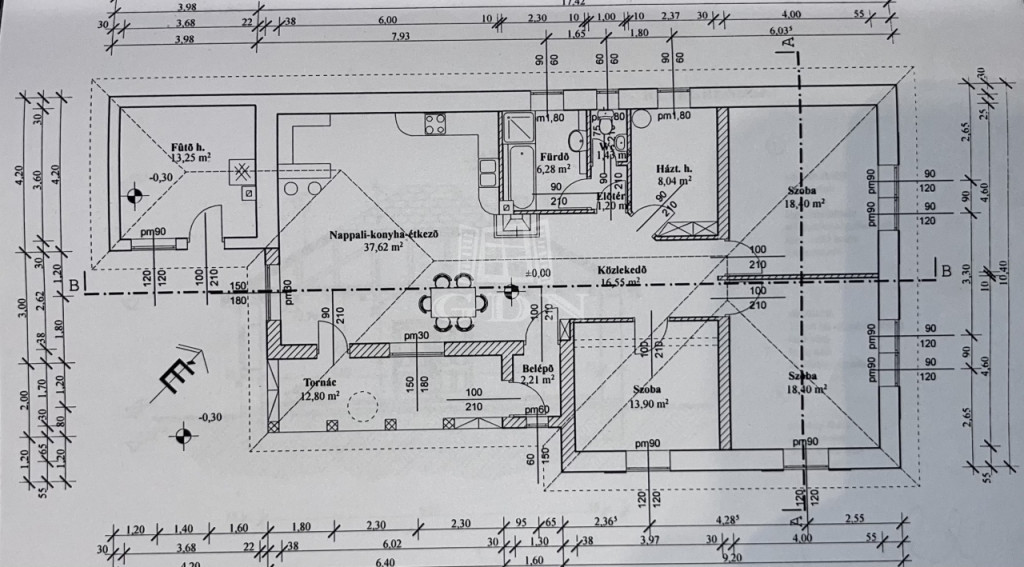 17,42
3,98
30 3,68 22 38 6,00 10 2,30 10 1,00 10 2,37 30 4,00 55
3,98 7,93 1,65 1,80 6,03⁵
90 60 60 60 90 60
A
pm1,80 pm1,80 pm1,80
Fûtõ h.
13,25 m²
-0,30
pm90
Fürdõ
6,28 m²
75
1,43 m²
Elõtér
1,20 m²
90
210
90
210
Házt. h.
8,04 m²
90
210
Szoba
18,40 m²
pm90 90
120
pm90 90
120
Nappali-konyha-étkezõ
37,62 m²
±0,00
Közlekedõ
16,55 m²
100
210
100
210
B
B
120
120
100
210
150
180
pm30
90
210
pm30
GDN
100
210
100
210
Tornác
12,80 m²
150
180
Belépõ
2,21 m²
100
210
pm60
60
150
Szoba
13,90 m²
pm90
120
120
Szoba
18,40 m²
pm90
120
120
pm90 90
120
pm90 90
120
É
-0,30
A
4,20 3,00 2,00 1,20
30 3,60 30 2,62 38 1,70 30 65 55
4,20 1,20 1,80 1,20 80 1,20
2,65 90 3,30 90 2,65
30 25 4,60 10 4,60 55
10,40
1,20 1,40 1,60 1,80 2,30 2,30 95 65 2,36⁵ 4,28⁵ 2,55
30 3,68 22 38 6,02 30 1,30 38 3,97 30 4,00 55
4,20 6,40 1,60 9,20